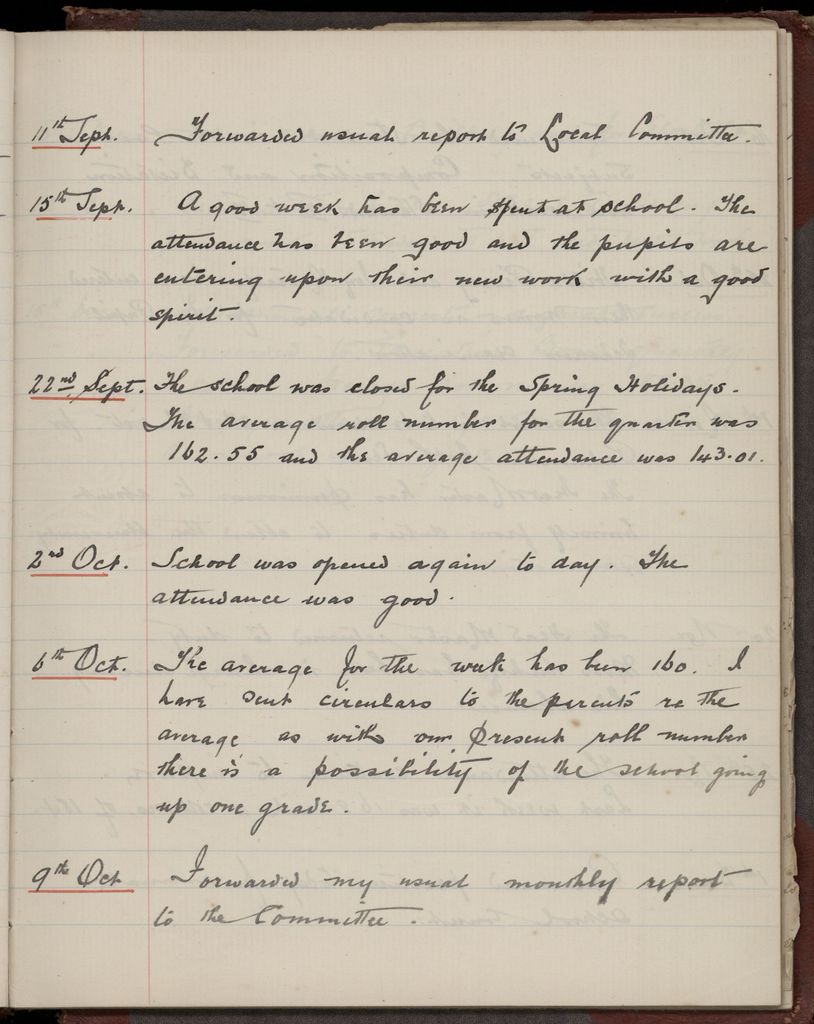 11th Sept. Forwarded usual report to Local Committee.
15th Sept. A good week has been spent at school. The
attendance has been good and the pupils are
entering upon their new work with a good
spirit.
22nd Sept. The school was closed for the Spring Holidays.
The average roll number for the quarter was
162.55 and the average attendance was 143.01.
2nd Oct. School was opened again to day. The
attendance was good.
6th Oct. The average for the week has been 160. I
have sent circulars to the parents re the
average as with our present roll number
there is a possibility of the school going
up one grade.
9th Oct Forwarded my usual monthly report
to the Committee.